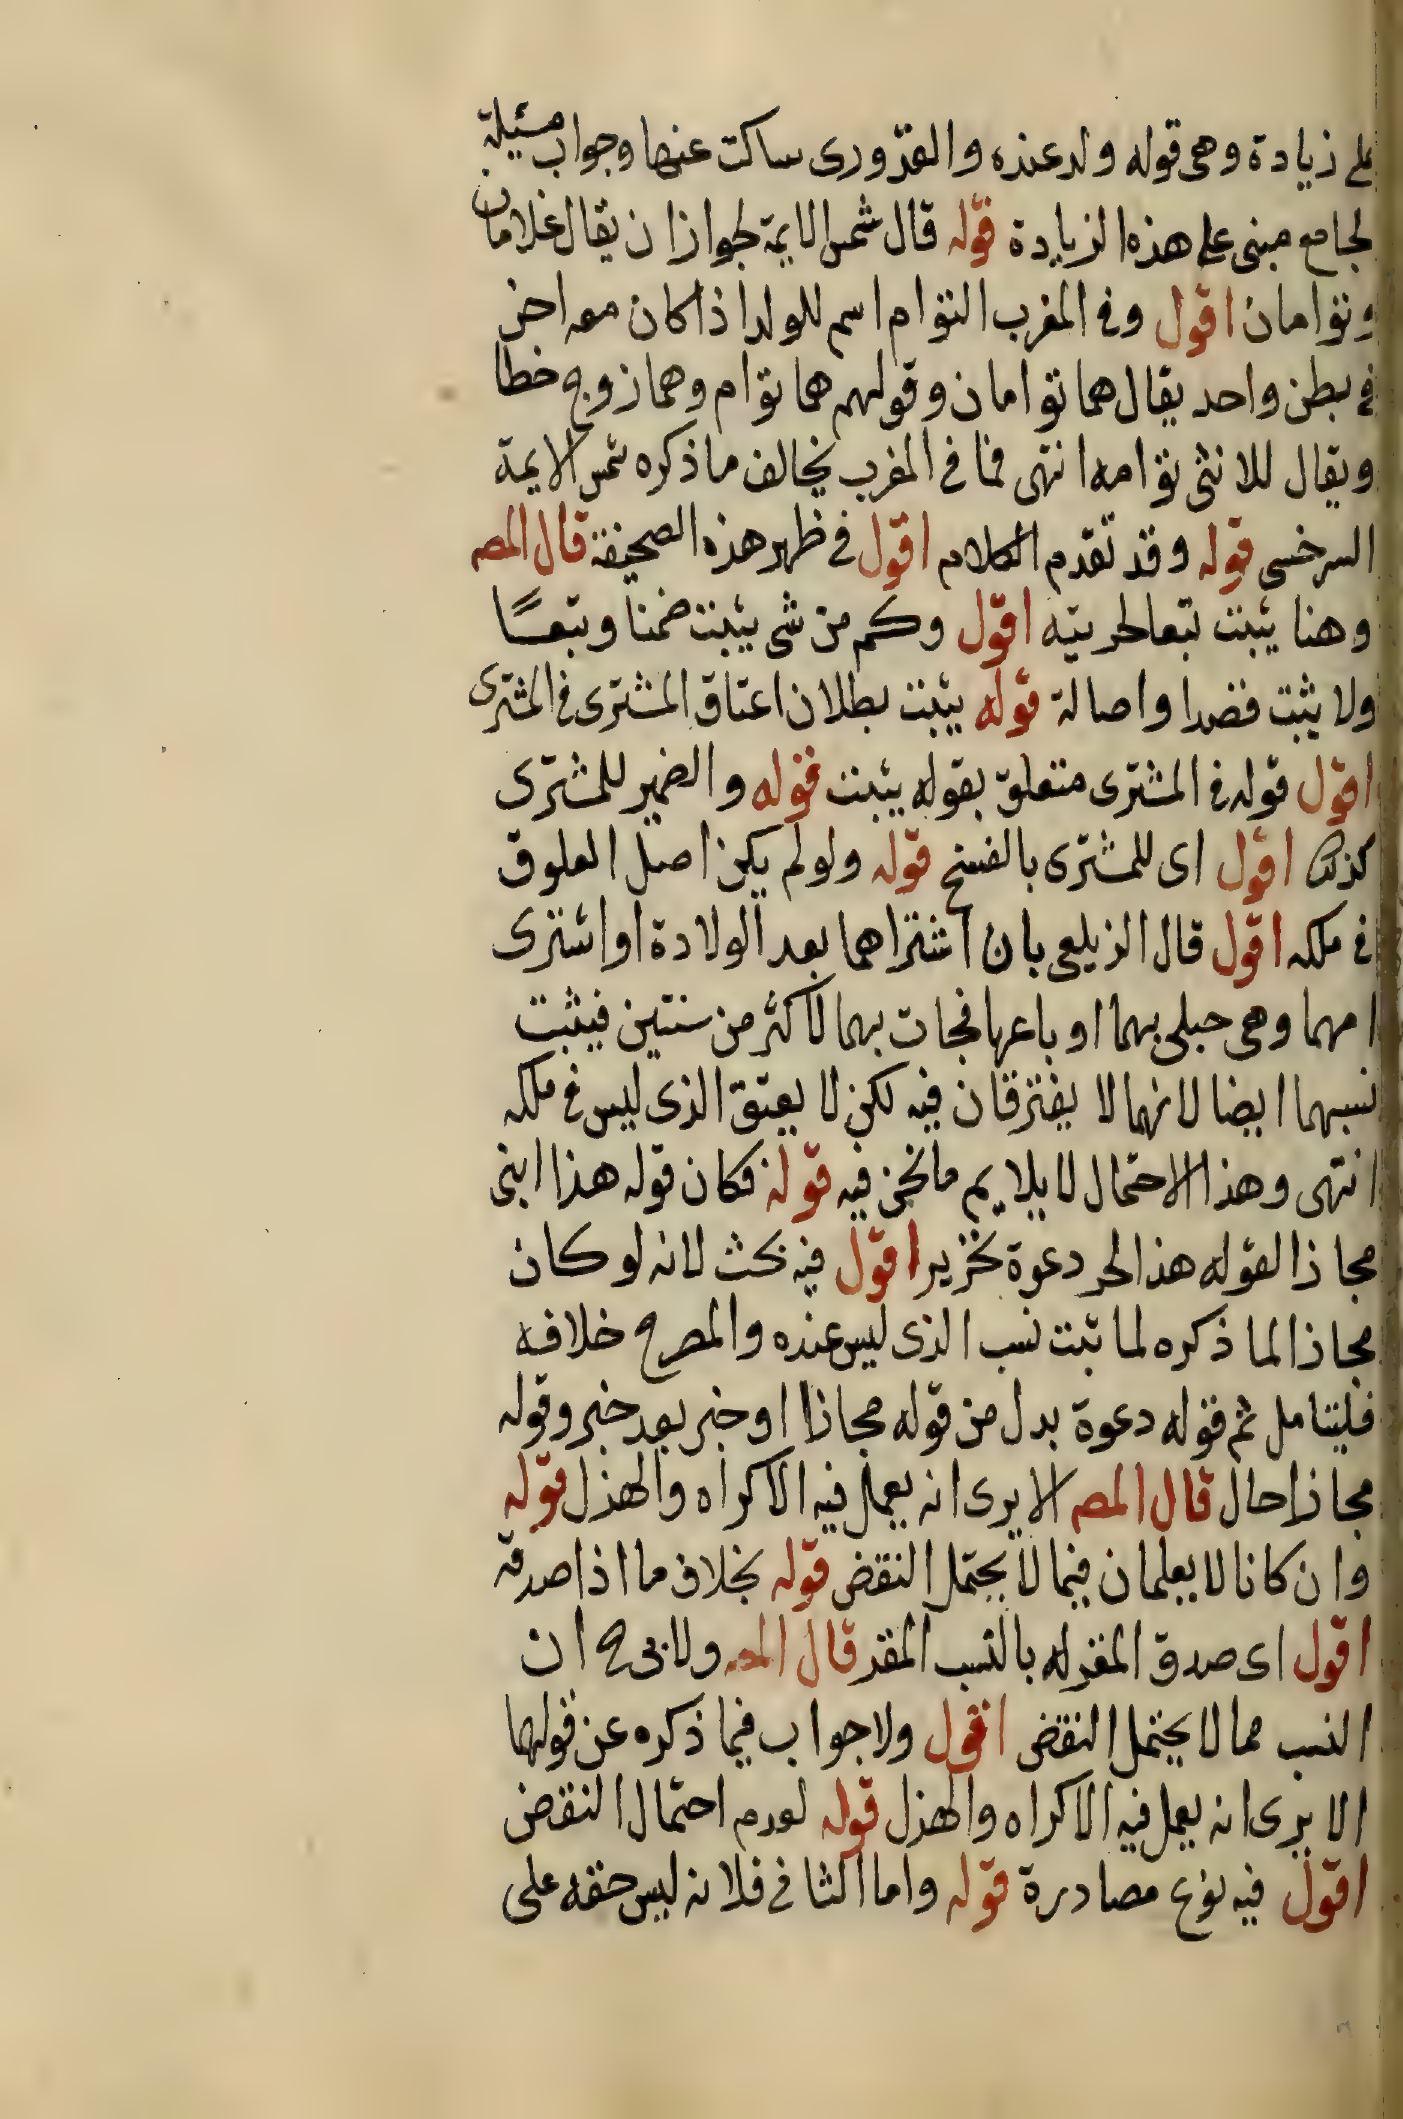 على زيادة وهى قوله ولد عنده والقدورى ساكت عنها وجواب مسئلة
لجامع مبنى على هذه الزيادة قوله قال شمس الايمة لجواز ان يقال غلامان
وتوامان اقول وفى المغرب التوام اسم للولد اذا كان معه اخر
فى بطن واحد يقال هما توامان وقولهم هما توام وهما زوج خطا
ويقال للانثى توامه انتهى فما فى المغرب يخالف ما ذكره شمس الايمة
السرخسى قوله وقد تقدم الكلام اقول فى ظهر هذه الصحيفة قال المص
وهنا يثبت تبعا لحريته اقول وكم من شى يثبت ضمنا وتبعًا
ولا يثبت قصدا واصالة قوله يثبت بطلان اعتاق المشترى فى المشترى
اقول قوله فى المشترى متعلق بقوله يثبت قوله والضمير للمشترى
كذلك اقول اى للمشترى بالفسخ قوله ولو لم يكن اصل العلوق
فى ملكه اقول قال الزيلعى بان اشتراهما بعد الولادة او اشترى
امهما وهى حبلى بهما او باعها فجات بهما لاكثر من سنتين فيثبت
نسبهما ايضا لانهما لا يفترقان فيه لكن لا يعتق الذى ليس فى ملكه
انتهى وهذا الاحتمال لا يلايم ما نحن فيه قوله فكان قوله هذا ابنى
مجازا لقوله هذا لحر دعوة تحرير اقول فيه بحث لانه لو كان
مجازا لما ذكره لما ثبت نسب الذى ليس عنده والمصرح خلافه
فليتامل ثم قوله دعوة بدل من قوله مجازا او خبر بعد خبر وقوله
مجازا حال قال المص الا يرى انه يعمل فيه الاكراه والهزل قوله
وان كانا لا يعلمان فيما لا يحتمل النقض قوله بخلاف ما اذا صدقه
اقول اى صدق المقر له بالنسب المقر قال المص ولابى ح ان
النسب مما لا يحتمل النقض اقول ولا جواب فيما ذكره عن قولهما
الا يرى انه يعمل فيه الاكراه والهزل قوله لعدم احتمال النقض
اقول فيه نوع مصادرة قوله واما الثانى فلانه ليس حقه على